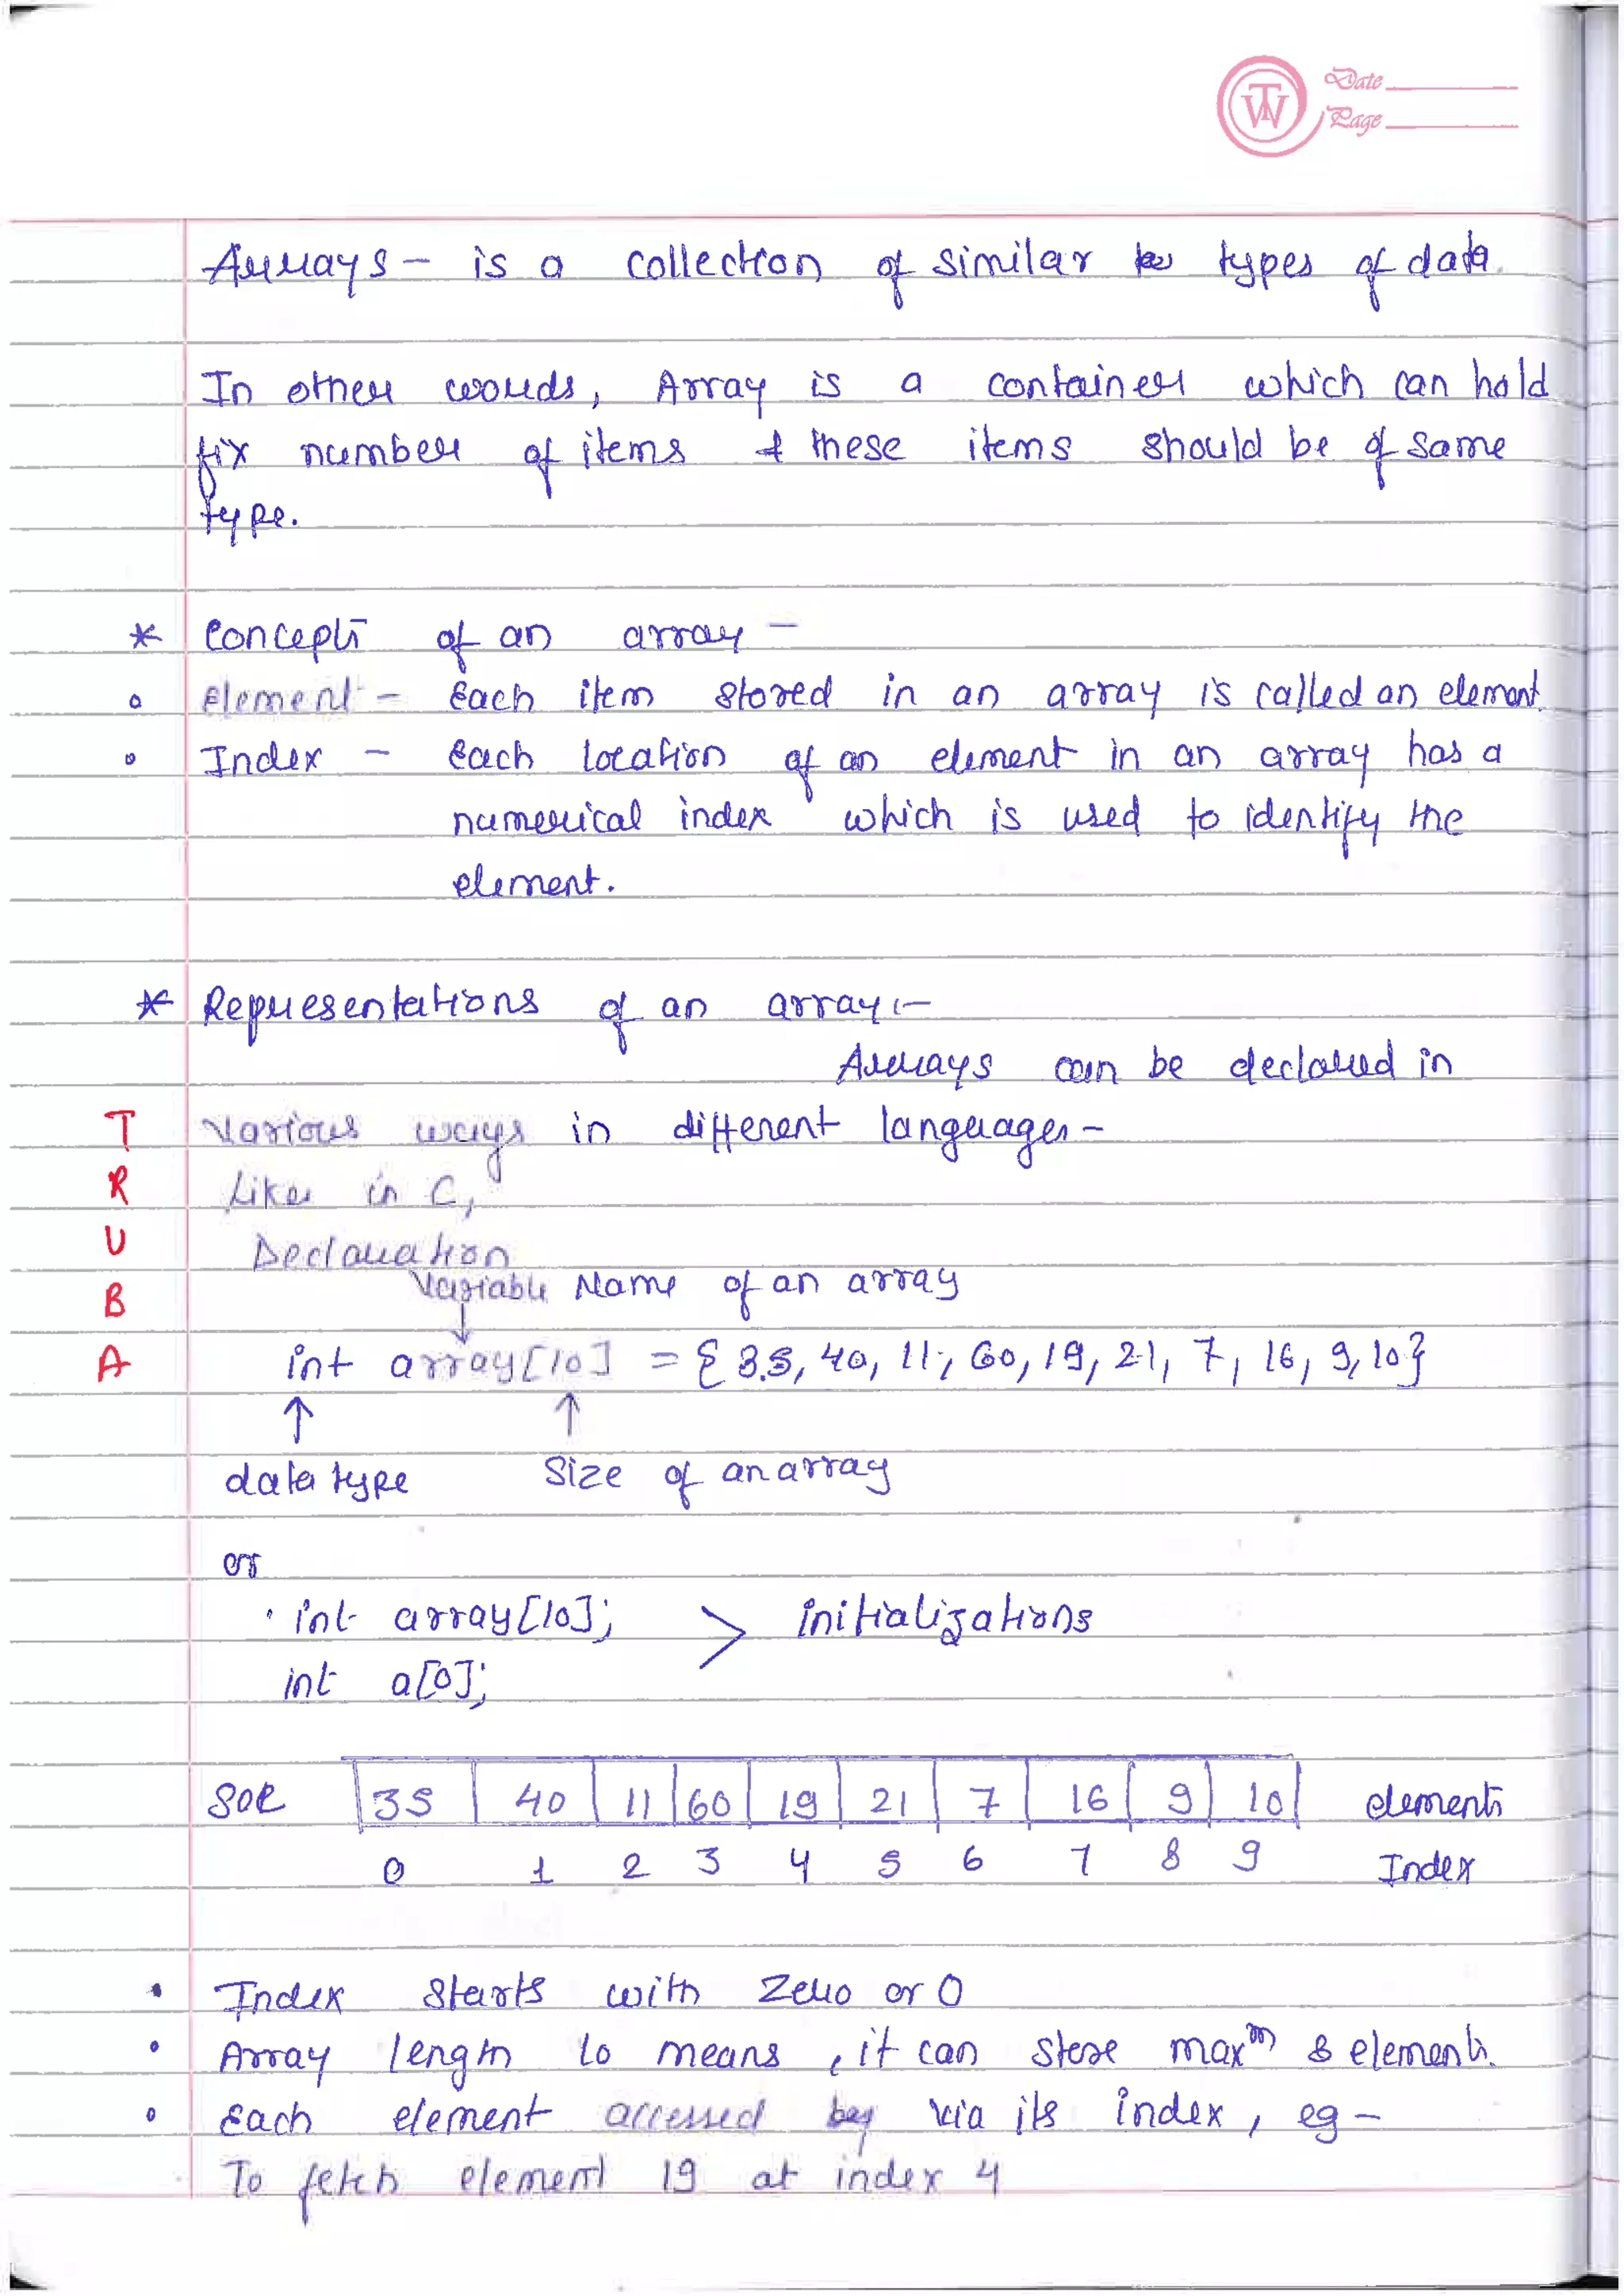 TW Date
Page
Arrays - is a collection of similar types of data.
In other words, Array is a container which can hold
fix number of items & these items should be of same
type.
* Concepts of an array -
o Element - Each item stored in an array is called an element.
o Index - Each location of an element in an array has a
numerical index which is used to identify the
element.
* Representations of an array :-
Arrays can be declared in
T various ways in different languages -
R Like in C,
U Declaration
Variable Name of an array
B
A int array[10] = {35, 40, 11, 60, 19, 21, 7, 16, 9, 10}
↑ ↑
data type Size of an array
or
int array[10]; > initializations
int a[0];
35 40 11 60 19 21 7 16 9 10 elements
0 1 2 3 4 5 6 7 8 9 Index
• Index starts with Zero or 0
• Array length 10 means, it can store maxm 8 elements.
• Each element accessed by via its index, eg -
To fetch element 19 at index 4